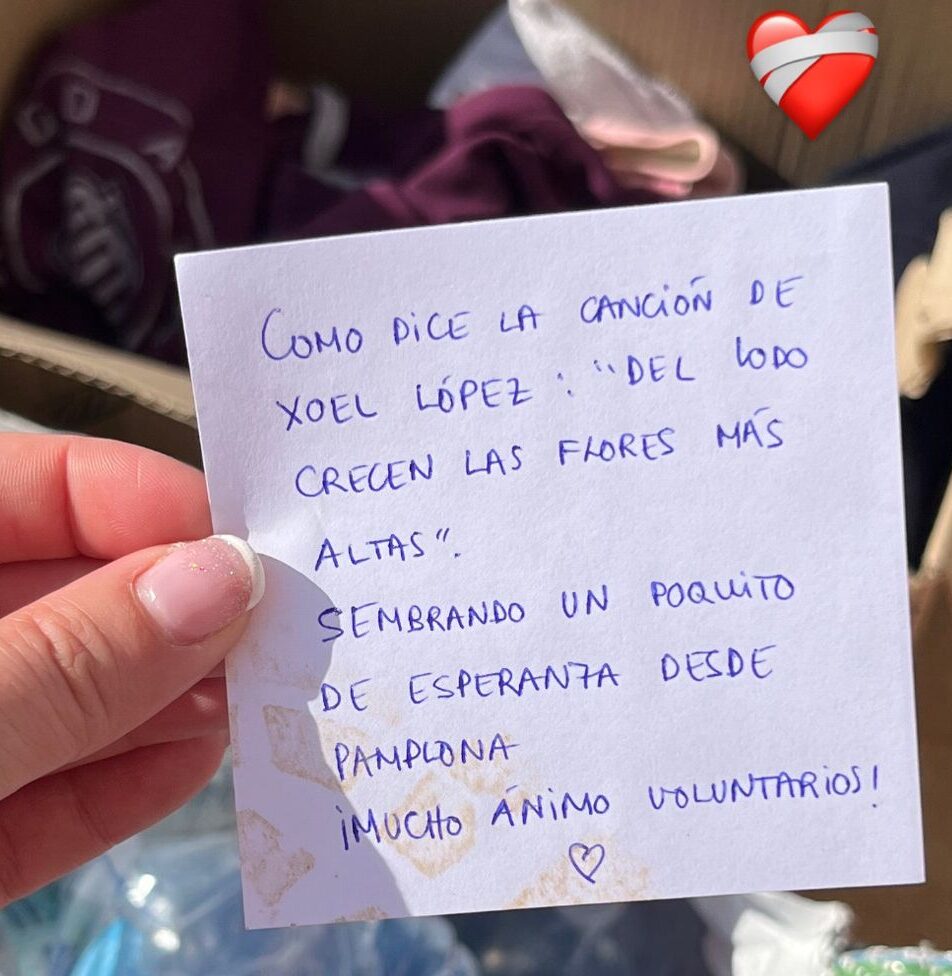 COMO DICE LA CANCIÓN DE
XOEL LÓPEZ : "DEL LODO
CRECEN LAS FLORES MÁS
ALTAS".
SEMBRANDO UN POQUITO
DE ESPERANZA DESDE
PAMPLONA
¡MUCHO ÁNIMO VOLUNTARIOS!